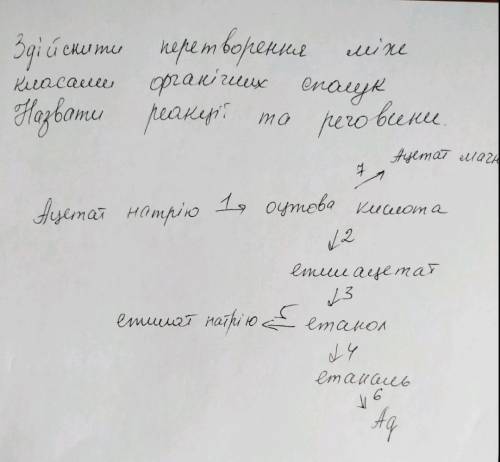 Здійснити перетворення між
класами органічних сполук
Назвати реакції та речовини.
7 Ацетат магн
Ацетат натрію 1→ оцтова кислота
↓2
етилацетат
↓3
етилат натрію ⇐5 етанол
↓4
етаналь
↓6
Ag